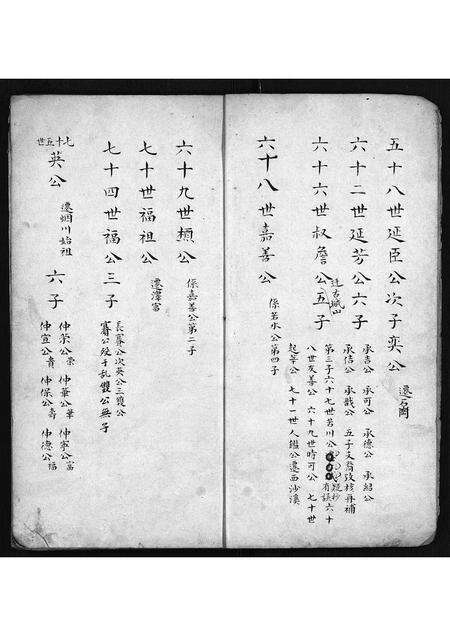 五十八世延臣公次子奕公
遷石門
六十二世延芳公六子
承吉公 承可公 承德公 承紹公
承信公 承戩公 五子又詹攷核再補
六十六世叔詹公五子
遷古城山
第三子六十七世若川公
疑抄有誤 六十
八世友善公 六十九世時可公 七十世
起華公 七十一世人鑑公遷西沙溪
六十八世嘉善公
係若水公第四子
六十九世櫄公
係嘉善公第二子
七十世福祖公
遷潭富
七十四世福公三子
長賽公次英公三顯公
賽公歿于乱顯公無子
七十五世
英公
遷烟川始祖
六子
仲榮公榮 仲華公華 仲寧公富
仲宣公貴 仲保公壽 仲德公福